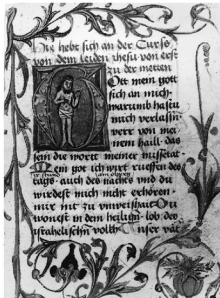 Hie hebt sich an der Curs
von dem leiden ihesu von erst
zu der metten
Ott mein gott
sich an mich
warumb hastu
mich verlassn
verr von mei
nem haill. das
sein die wortt meiner missetat
Mein got ich wirt rueffen des
tags. auch des nachts vnd du
wirdest mich nicht erhoren.
mir nit zu vnweishait Du
wonest in dem heilign. lob. des
israhelischn volkh. vnser vat